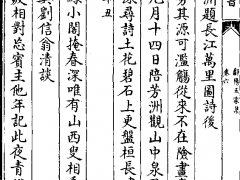 鄱陽五家集
卷六
洲題長江萬里圖詩後
勞其源可濫觴從來不在險畫
九月十四日陪芳洲觀山中泉
深尋詩土花碧石上更盤桓長
丑
綠小閣掩春深唯有山西叟相
與劉信翁清談
夜相對忘賓主他年記此夜青